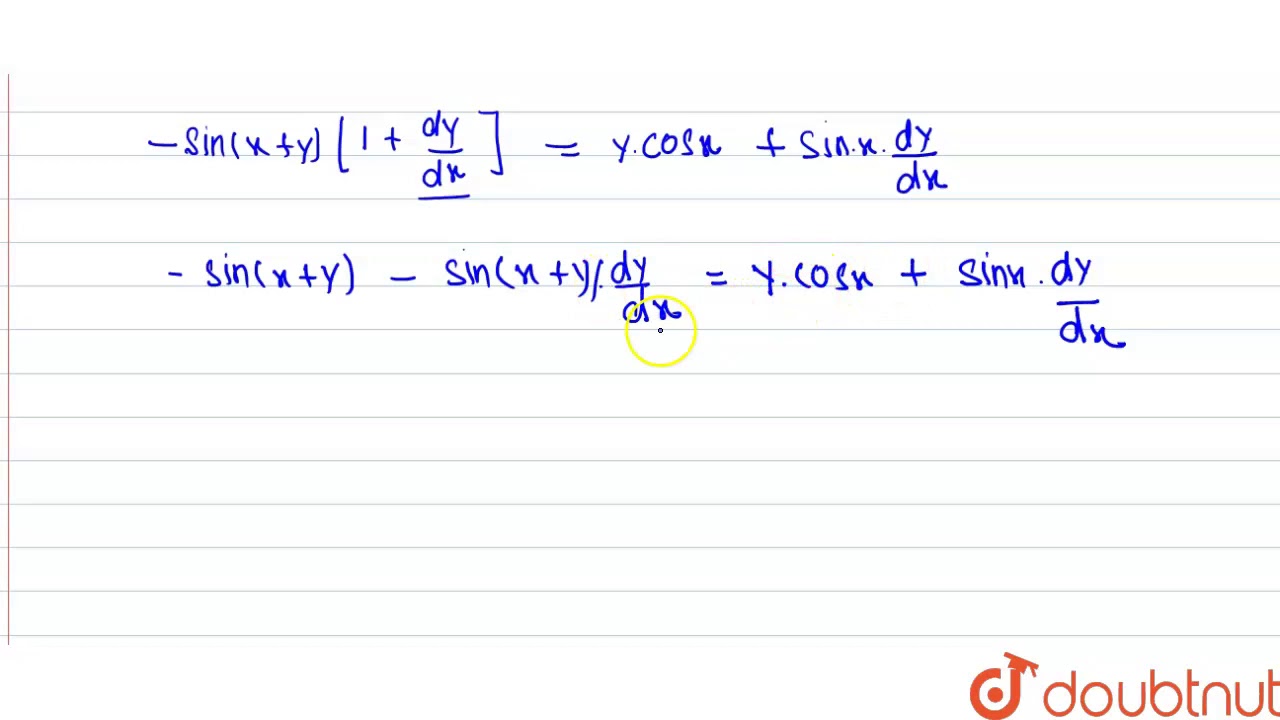 - sin(x+y) [1 + dy/dx] = y.cosx + sin.x.dy/dx
- sin(x+y) - sin(x+y).dy/dx = y.cosx + sinx.dy/dx
doubtnut